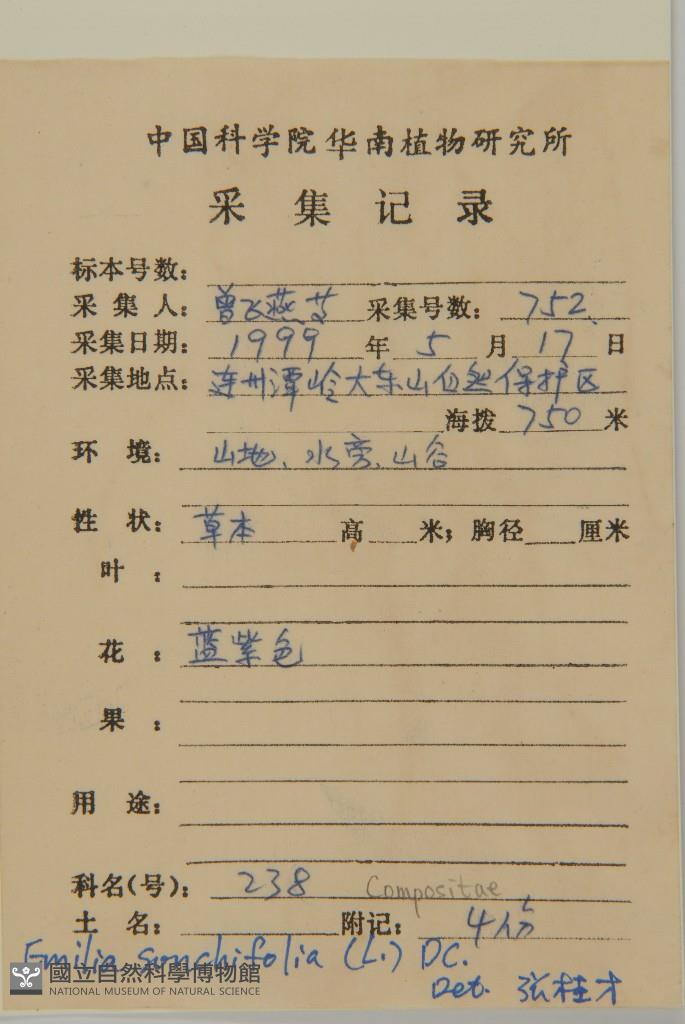 中国科学院华南植物研究所
采集记录
标本号数:
采集人: 曾飞燕等 采集号数: 752
采集日期: 1999 年 5 月 17 日
采集地点: 连州潭岭大东山自然保护区
海拨 750 米
环境: 山地、水旁、山谷
性状: 草本 高 米; 胸径 厘米
叶:
花: 蓝紫色
果:
用途:
科名(号): 238 Compositae
土名: 附记: 4份
Emilia sonchifolia (L.) DC.
Det. 张桂才
國立自然科學博物館
NATIONAL MUSEUM OF NATURAL SCIENCE